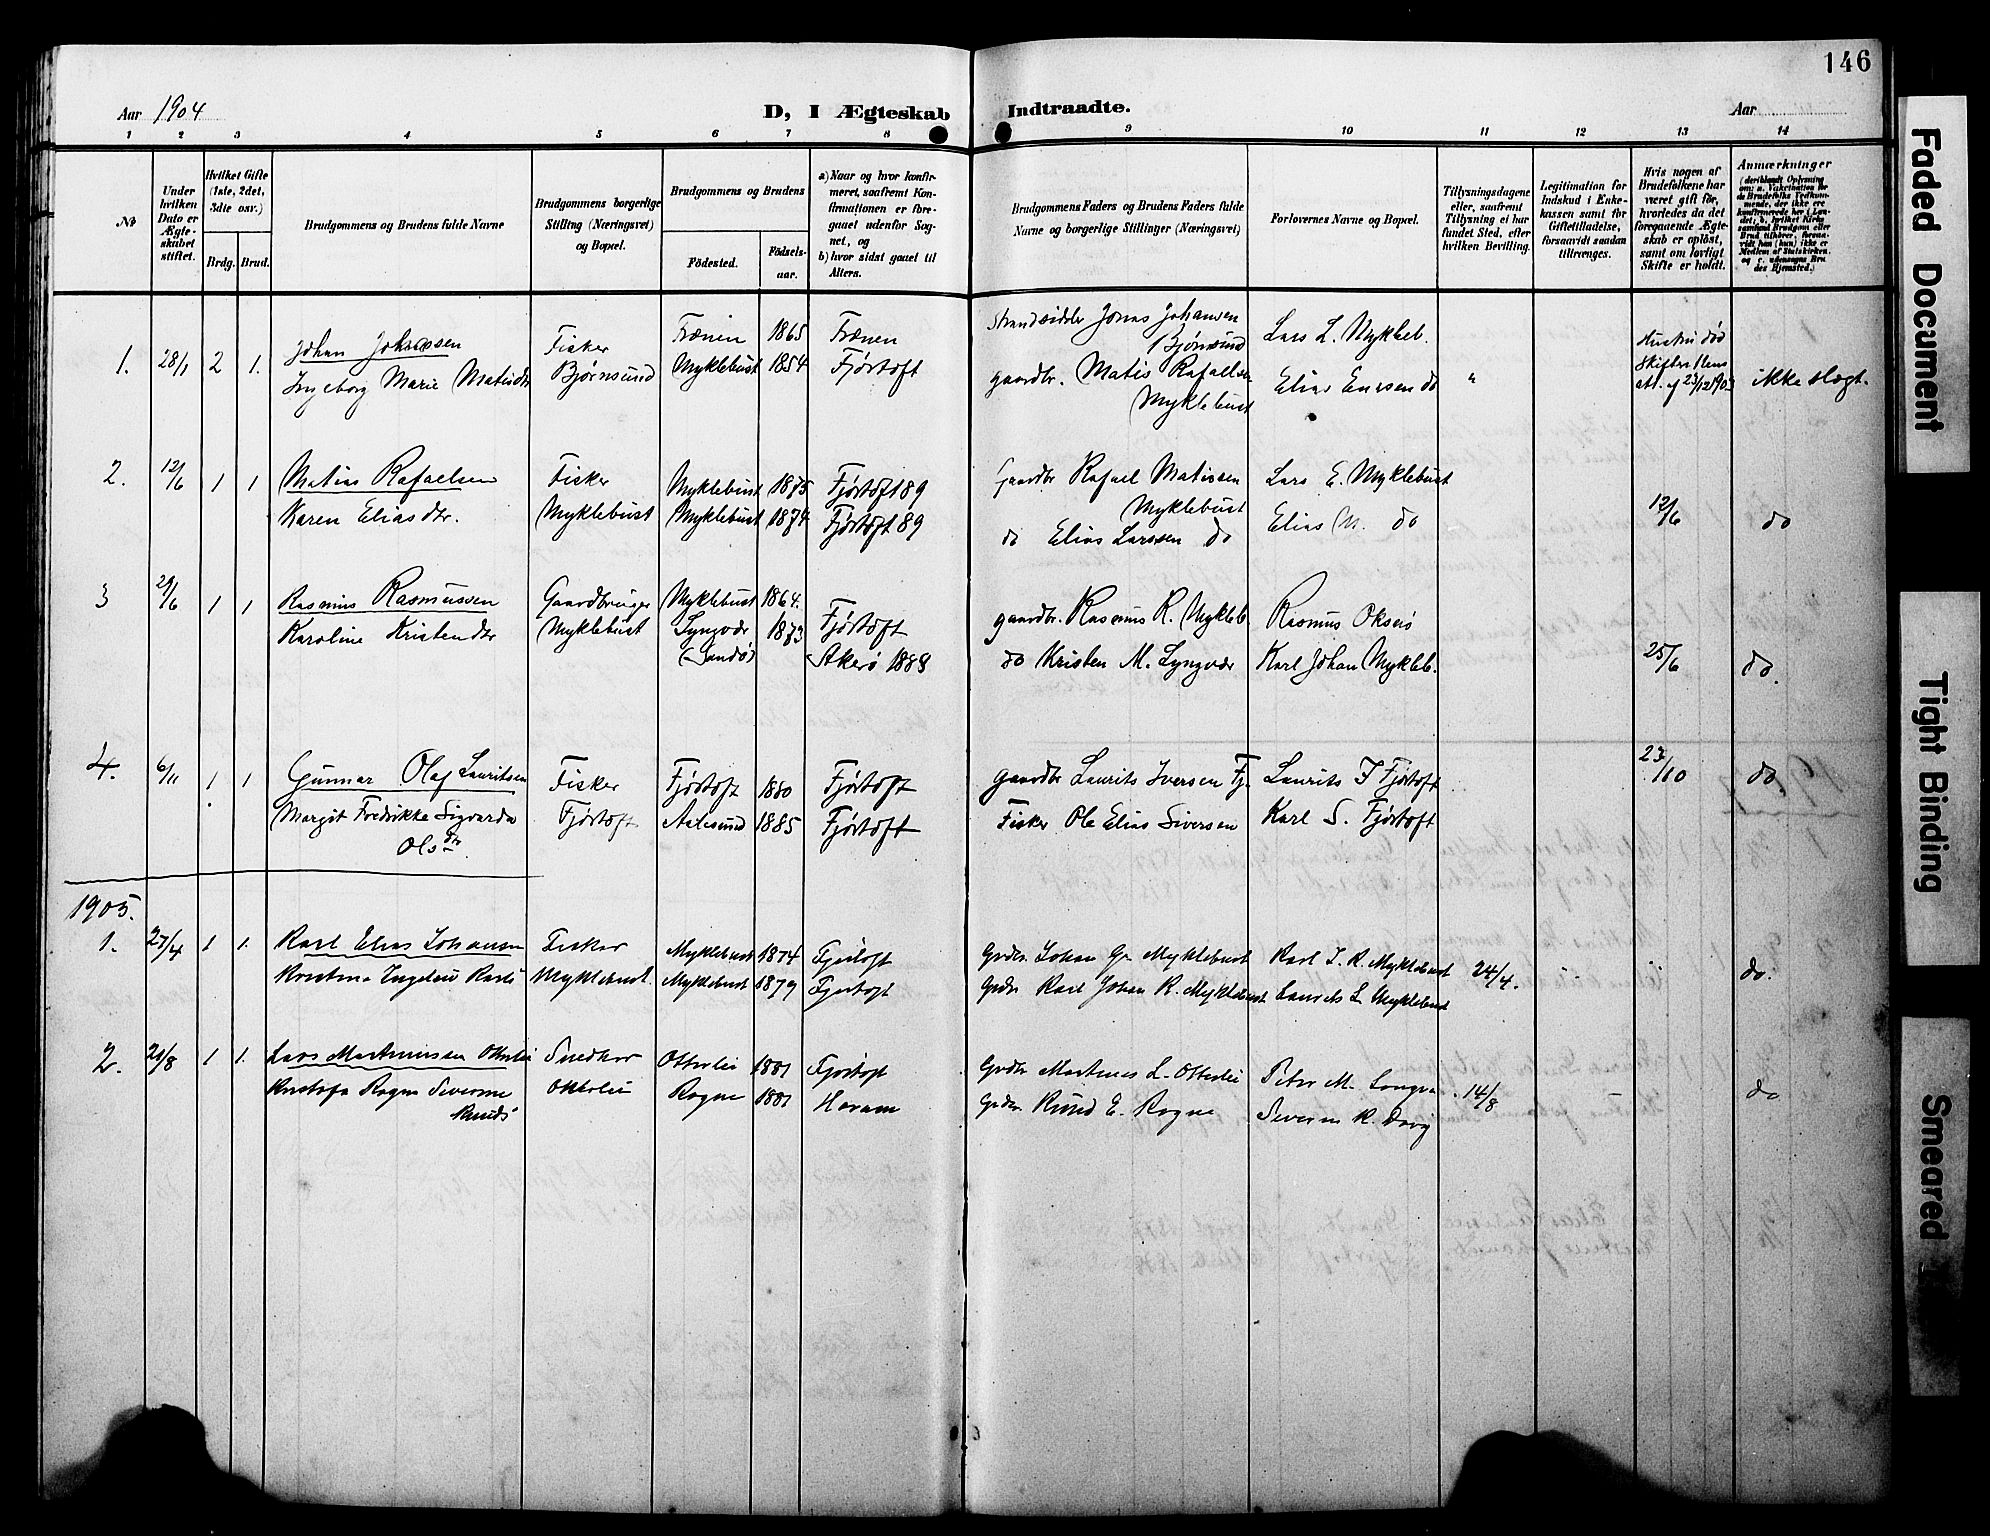 146
Aar 1904
D, I Ægteskab Indtraadte.
Aar
1 2 3 4 5 6 7 8 9 10 11 12 13 14
No
Under hvilken Dato er Ægteskabet stiftet.
Hvilket Gifte (1ste, 2det, 3die osv.)
Brdg. Brud.
Brudgommens og Brudens fulde Navne
Brudgommens borgerlige Stilling (Næringsvei) og Bopæl.
Brudgommens og Brudens
Fødested.
Fødselsaar.
a) Naar og hvor konfirmeret, saafremt Konfirmationen er foregaaet udenfor Sognet, og
b) hvor sidst gaaet til Alters.
Brudgommens Faders og Brudens Faders fulde Navne og borgerlige Stillinger (Næringsvei)
Forlovernes Navne og Bopæl.
Tillysningsdagene eller, saafremt Tillysning ei har fundet Sted, efter hvilken Bevilling.
Legitimation for Indskud i Enkekassen samt for Giftetilladelse, forsaavidt saadan tiltrænges.
Hvis nogen af Brudefolkene har været gift før, hvorledes da det foregaaende Ægteskab er opløst, samt om lovligt Skifte er holdt.
Anmærkninger
(deriblandt Oplysning om: a. Vakcination for de Brudefolks Vedkommende, der ikke ere konfirmerede her i Landet; b. hvilket Kirkesamfund Brudgom eller Brud tilhører, forsaavidt han (hun) ikke er Medlem af Statskirken, og c. udensogns Brudes Hjemsted.)
1. 28/1 2 1. Johan Johnassen Fisker Frænen 1865 Frænen Strandsidder Jonas Johansen Bjørnsund Lars L. Mykleb. Hustru død
Ingeborg Marie Matisdtr Bjørnsund Myklebust 1854 Fjørtoft gaardbr. Matis Rafaelsen Myklebust Elias do " att. af 23/12 1903 ikke slægt.
2. 12/6 1 1 Matias Rafaelsen Fisker Myklebust 1875 Fjørtoft 89 Gaardbr Rafael Matissen Myklebust Lars E. Myklebust
Karen Eliasdtr. Myklebust Myklebust 1874 Fjørtoft 89 do Elias Larssen do Elias M. do 12/6 do
3 29/6 1 1 Rasmus Rasmussen Gaardbruger Myklebust 1864. Fjørtoft gaardbr. Rasmus R. Mykleb. Rasmus
Karoline Kristendtr Myklebust Lyngvær (Sandø) 1873 Akerø 1888 do Kristen M. Lyngvær Karl Johan Mykleb. 25/6 do.
4. 6/11 1 1 Gunnar Olaf Lauritsen Fisker Fjørtoft 1880 Fjørtoft gaardbr Laurits Iversen Fj. Laurits I Fjørtoft 23/10 do
Margit Fredrikke Sigvarda Olsdtr Fjørtoft Aalesund 1885 Fjørtoft Fisker Ole Elias Siversen Karl S. Fjørtoft
1905.
1. 27/4 1 1. Karl Elias Johansen Fisker Myklebust 1874 Fjørtoft Grdbr. Johan Gr. Myklebust Karl J. R. Myklebust
Myklebust. Myklebust 1879 Fjørtoft Grdbr Karl Johan R. Myklebust Laurits L Myklebust 24/4. do.
2. 20/8 1 1. Lars Martinussen Otterlei Snedker Otterlei 1881 Fjørtoft Grdbr Martinus L. Otterlei Peter M. Longva
Ragna Severine Knuds Otterlei Rogne 1881 Haram Grdbr. Knud E. Rogne Severin K. 14/8 do
Faded Document
Tight Binding
Smeared